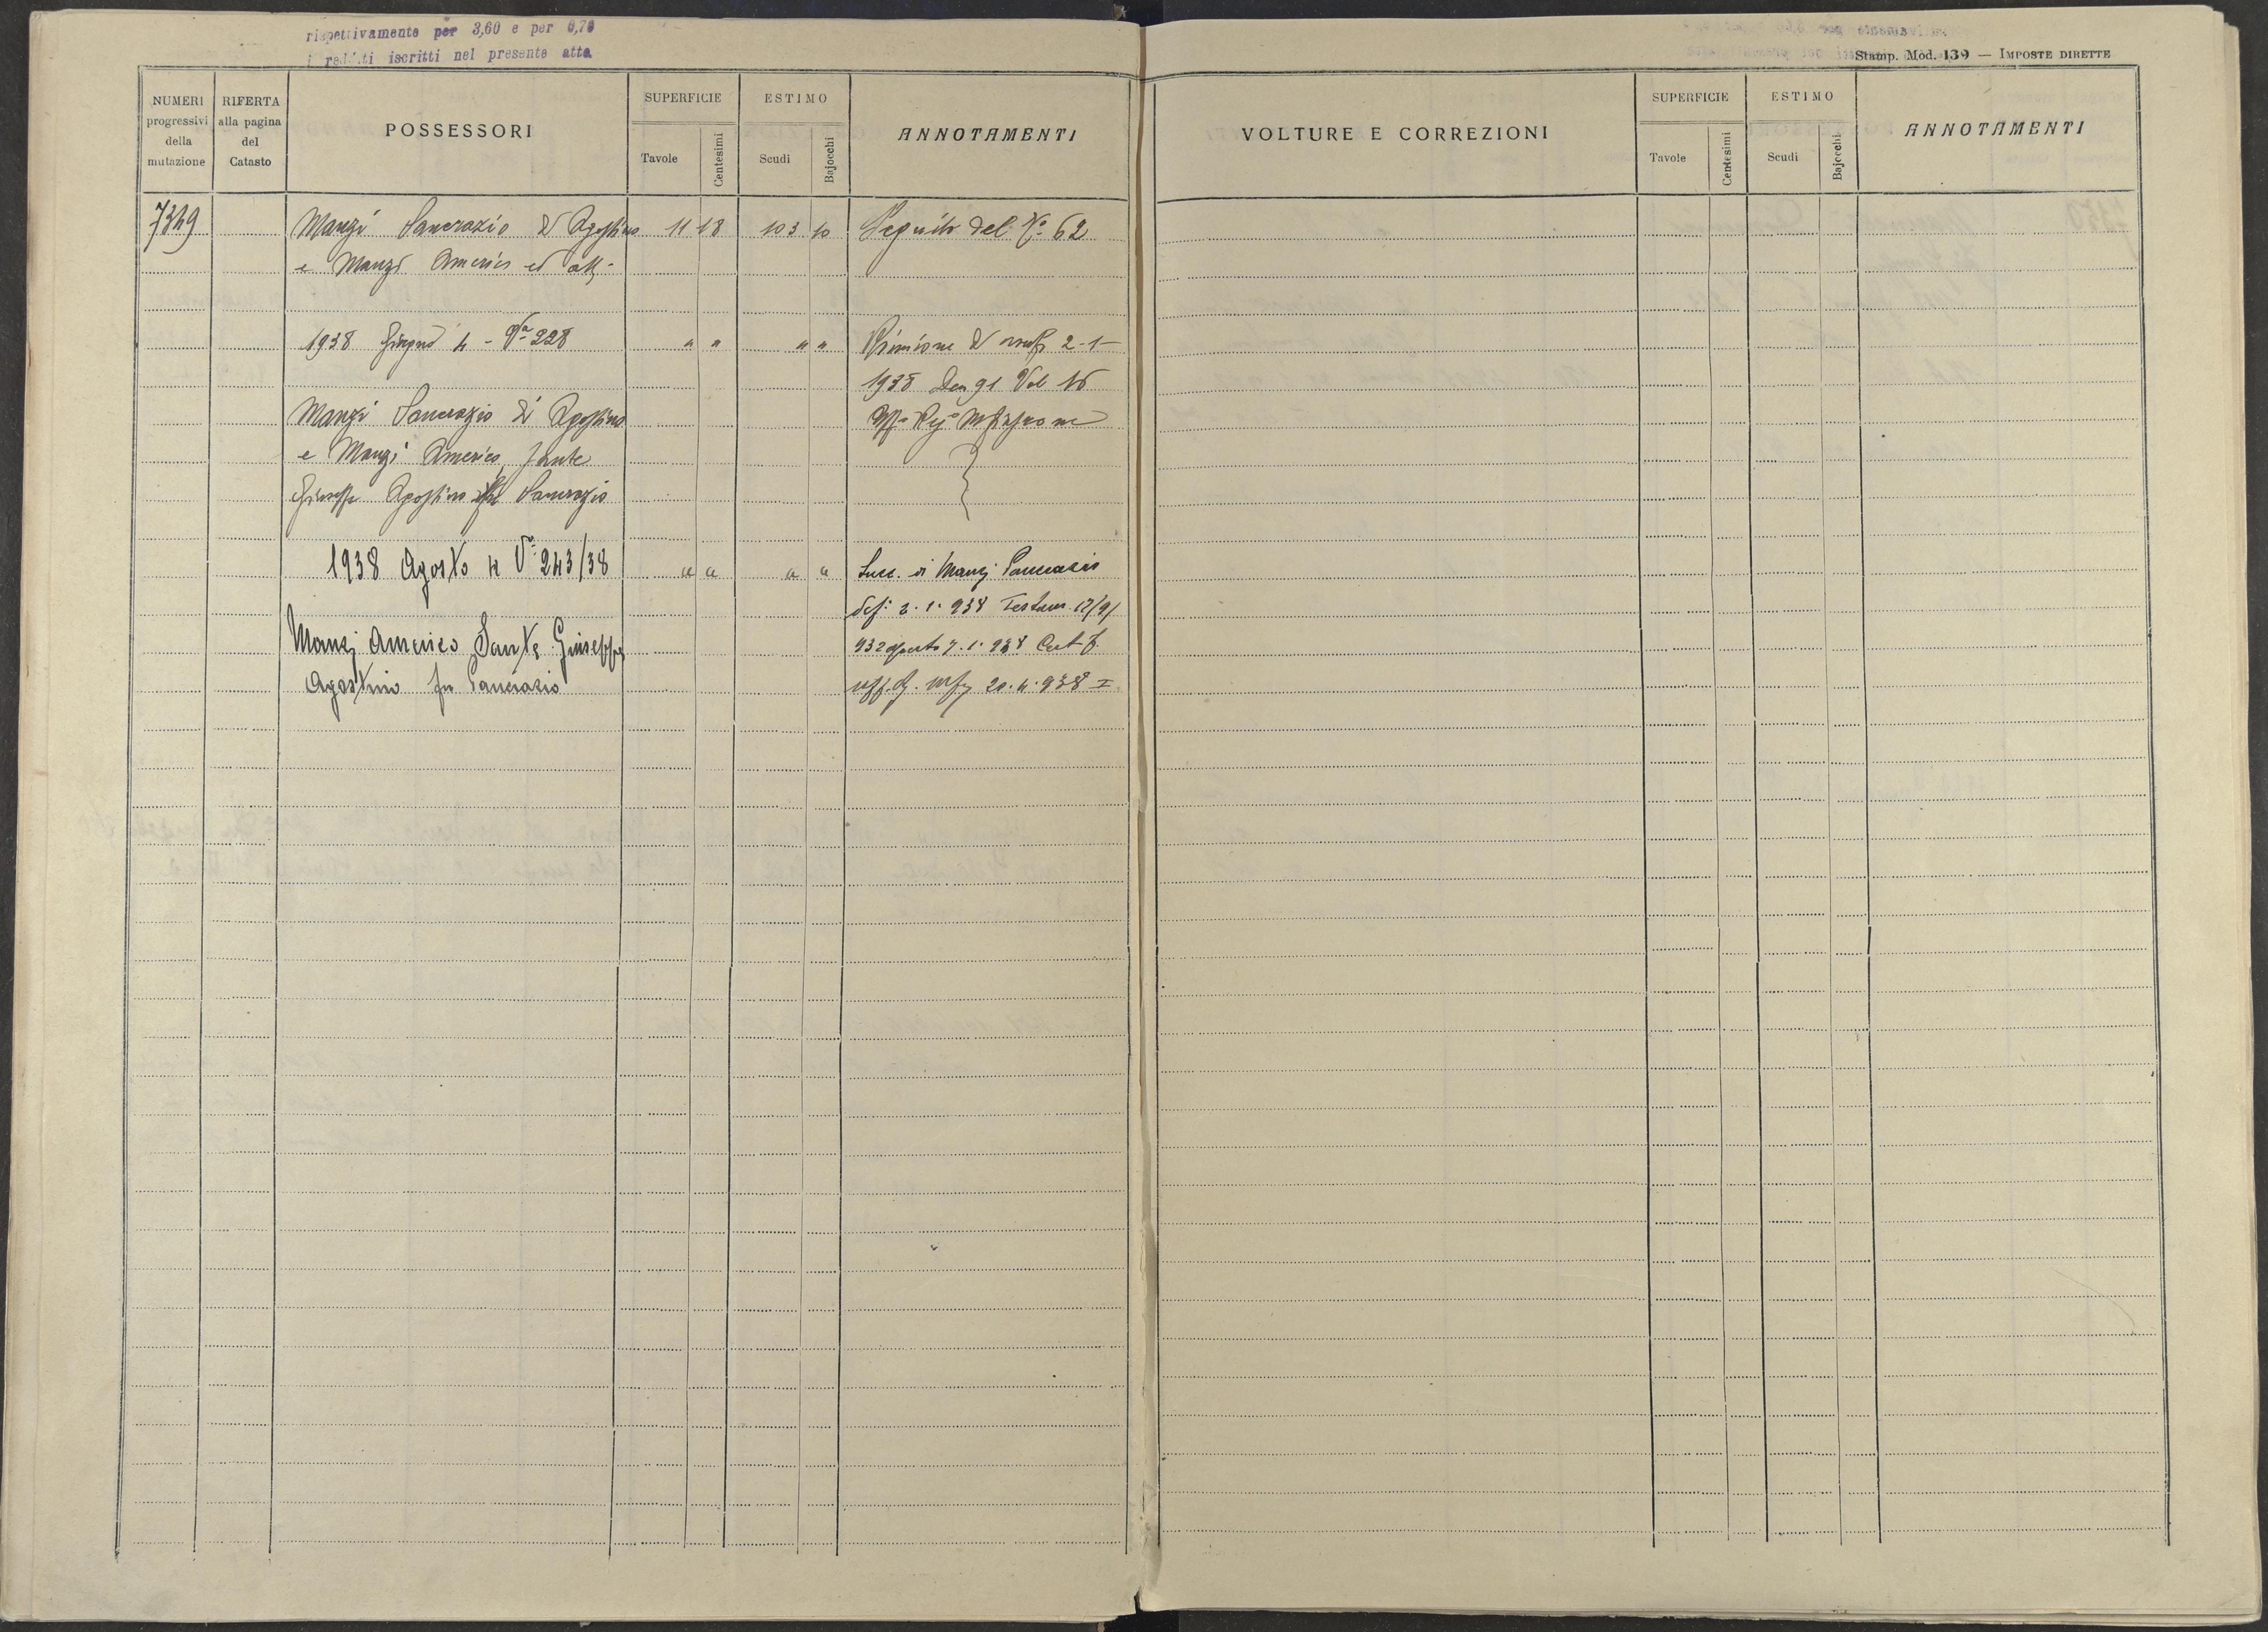 rispettivamente per 3,60 e per 0,70
i redditi iscritti nel presente atto
Stamp. Mod. 139 — IMPOSTE DIRETTE
NUMERI progressivi della mutazione
RIFERTA alla pagina del Catasto
POSSESSORI
SUPERFICIE
Tavole
Centesimi
ESTIMO
Scudi
Bajocchi
ANNOTAMENTI
VOLTURE E CORREZIONI
SUPERFICIE
Tavole
Centesimi
ESTIMO
Scudi
Bajocchi
ANNOTAMENTI
7349 Manzi Pancrazio di Agostino 11 18 103 10 Seguito del No 62
e Manzi Americo ed altri
1938 Giugno 4 - Va 228 " " " " Riunione di usuf. 2-1-
1938 Den 91 Vol 16
Manzi Pancrazio di Agostino
e Manzi Americo, Sante
Giuseppe Agostino Pancrazio
1938 Agosto 4 Va 243/38 " " " " Succ. di Manzi Pancrazio
def: 2.1.938 Testam. 12/9/
Manzi Americo Sante Giuseppe 932 aperto 7.1.938
Agostino fu Pancrazio 20.4.938 I